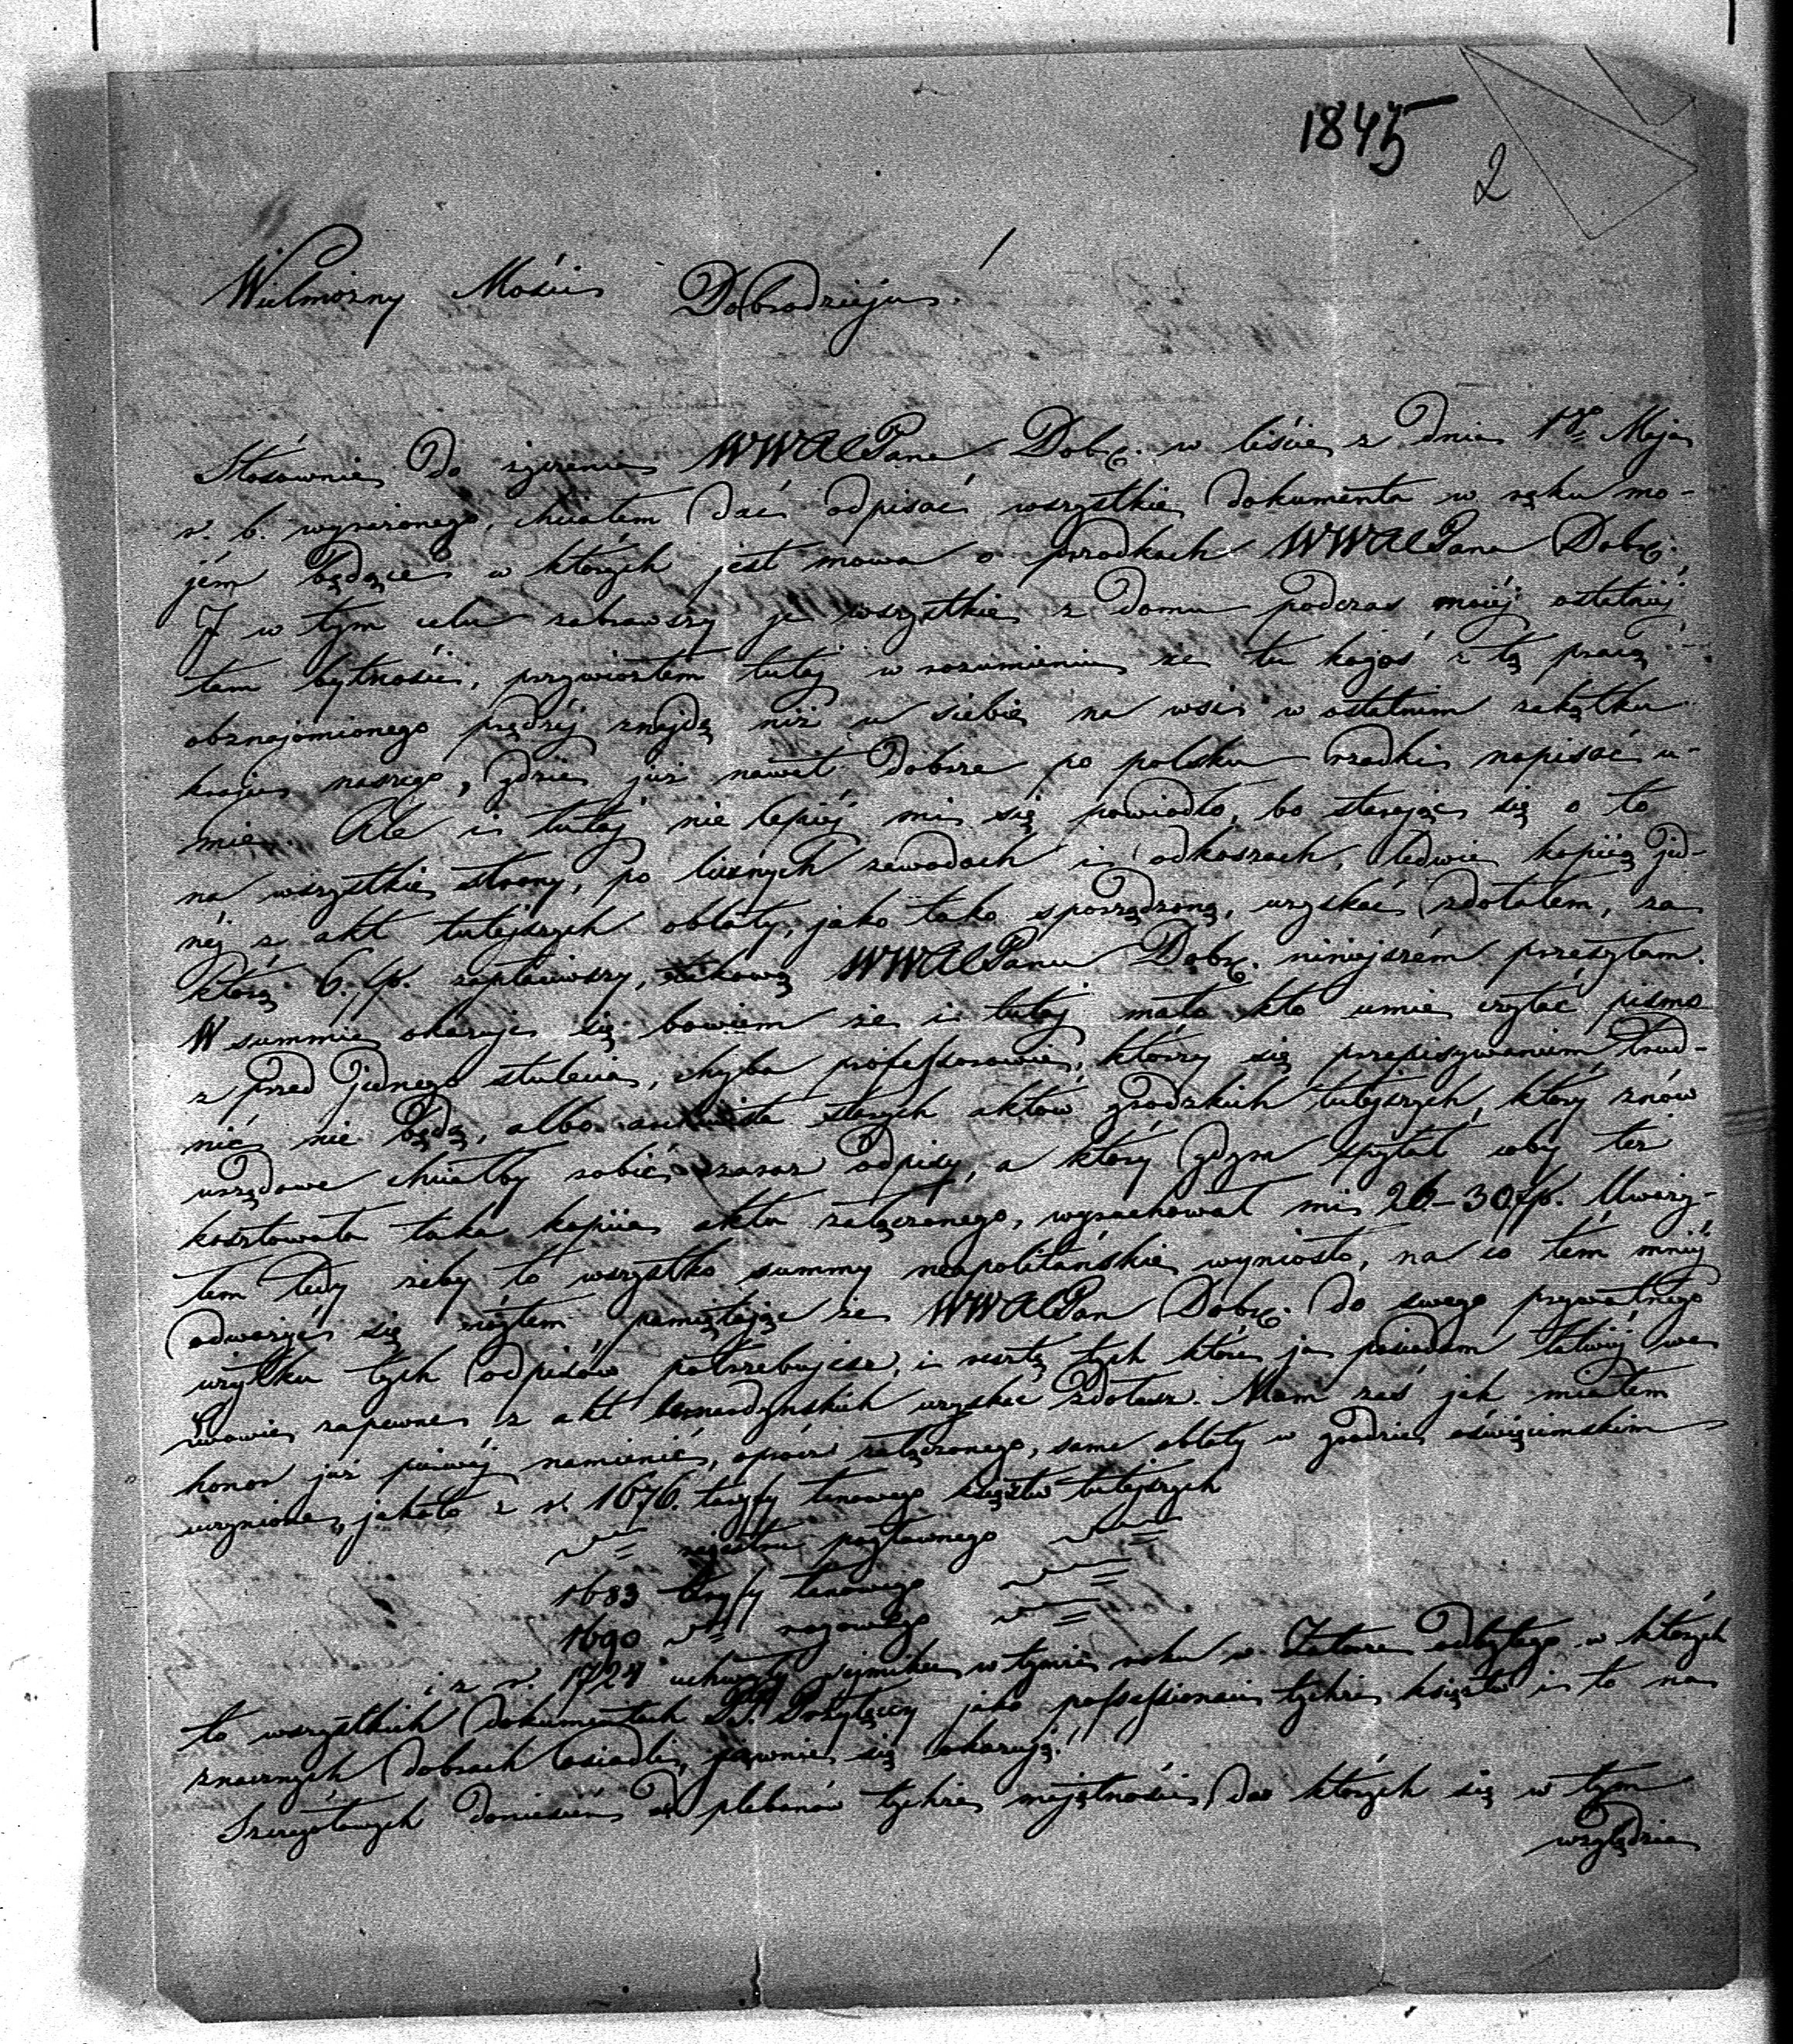 1845
2
Wielmożny Mości Dobrodzieju!
Stósownie do życzenia WWMPana Dobr. w liście z dnia 1go Maja
r. b. wyrażonego, chciałem dać odpisać wszystkie dokumenta w ręku mo-
jém będące w których jest mowa o przodkach WWMPana Dobr.
I w tym celu zabrawszy je wszystkie z domu podczas mojéj ostatniéj
tam bytności, przywiozłem tutaj w rozumieniu że tu kogoś z tą pracą
obznajomionego prędzéj znajdę niż u siebie na wsi w ostatnim zakątku
kraju naszego, gdzie już nawet dobrze po polsku rzadki napisać u-
mie. Ale i tutaj nie lepiéj mi się powiodło, bo starając się o to
na wszystkie strony, po licznych zawodach i odkoszach, ledwie kopiią jed-
néj z akt tutejszych oblaty, jako tako sporządzoną, uzyskać zdołałem, za
którą 6. zł. zapłaciwszy, takową WWMPanu Dobr. niniejszém przesyłam.
W summie okazuje się bowiem że i tutaj mało kto umie czytać pismo
z przed jednego stulecia, chyba professorowie, którzy się przepisywaniem trud-
nić nie będą, albo archiwista starych aktów grodzkich tutejszych, który znów
urzędowe chciałby robić zaraz odpisy, a który gdym spytał coby też
kosztowała taka kopiia aktu załączonego, wyrachował mi 26-30 zł. Uważy-
łem tedy żeby to wszystko summy neapolitańskie wyniosło, na co tém mniéj
odważyć się mógłem, pamiętając że WWMPan Dobr. do swego prywatnego
użytku tych odpisów potrzebujesz, i resztę tych które ja posiadam łatwiéj we
Lwowie zapewne z akt bernardyńskich uzyskać zdołasz. Mam zaś jak miałem
honor już piérwéj namienić, oprócz załączonego, same oblaty w grodzie oświęcimskim
uczynione, jakoto z r. 1676. taryfy łanowego księstw tutejszych
regestru pogłownego
1683 taryfy łanowego
1690
i z r. 1724 uchwały sejmiku w tymże roku w Zatorze odbytego w których
to wszystkich dokumentach jako possessionaci tychże księstw i to na
znacznych dobrach osiadli, jawnie się okazują.
Szczegółowych doniesień od plebanów tychże majętności, do których się w tym
względzie